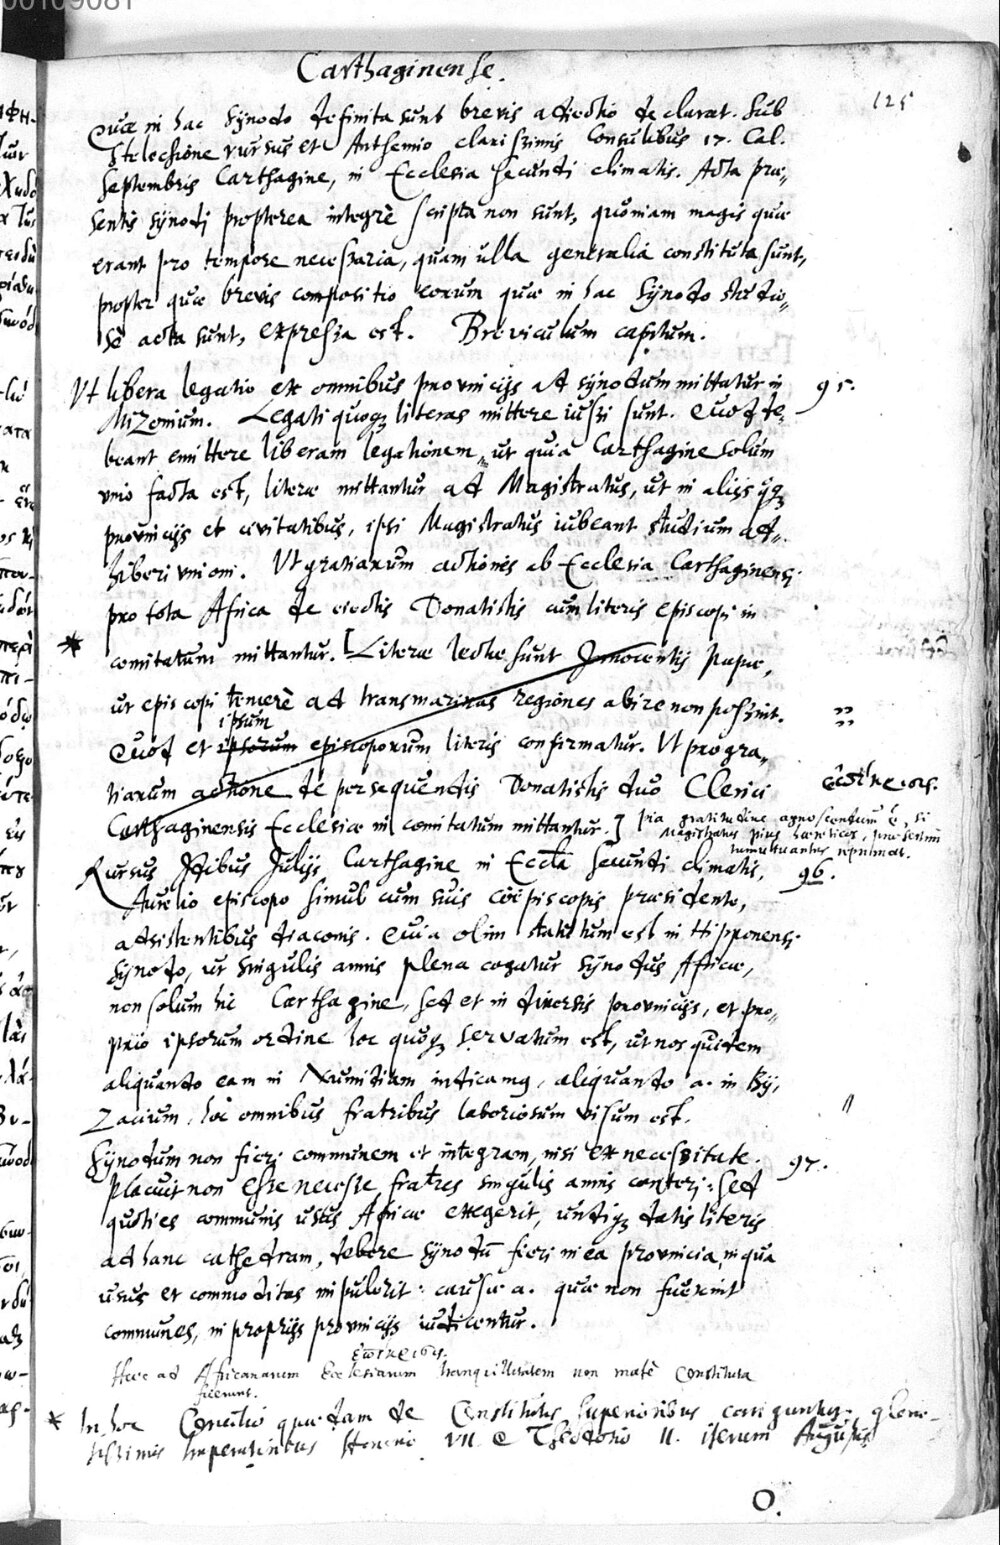 00109081
Carthaginense.
125
Quæ in hac Synodo definita sunt brevis adiectio declarat. Sub
Stelechione rursus et Anthemio clarissimis Consulibus 17. Cal.
Septembris Carthagine, in Ecclesia secundi climatis. Acta præ„
sentis synodi propterea integrè scripta non sunt, quoniam magis quæ
erant pro tempore necessaria, quam ulla generalia constituta sunt,
propter quæ brevis compositio eorum quæ in hac Synodo studio„
sè acta sunt, expressa est. Breviculum capitum.
Ut libera legatio ex omnibus provincijs ad synodum mittatur in
95.
Mizonium. Legati quoq; literas mittere iussi sunt. Quod de„
beant emittere liberam legationem, ut quia Carthagine solùm
unio facta est, literæ mittantur ad Magistratus, ut in alijs quoq;
provincijs et civitatibus, ipsi Magistratus iubeant studium ad„
hiberi unioni. Ut gratiarum actiones ab Ecclesia Carthaginensi
pro tota Africa de eiectis Donatistis cum literis episcopi in
* comitatum mittantur. [Literæ lectæ sunt Innocentij Papæ,
ut episcopi temerè ad transmarinas regiones abire non possint.
ipsum
Quod et ipsorum episcoporum literis confirmatur. Ut pro gra„
tiarum actione de persequendis Donatistis duo Clerici
Carthaginensis Ecclesiæ in comitatum mittantur.] pia gratitudine agnoscendum ē, si
Magistratus pius hæreticos, præsertim
tumultuantes reprimat.
Rursus Idibus Julijs Carthagine in Eccīa secundi climatis,
96.
Aurelio episcopo simul cum suis coëpiscopis præsidente,
adsistentibus diaconis. Quia olim statutum est in Hipponensi
synodo, ut singulis annis plena cogatur synodus Africæ,
non solum hic Carthagine, sed et in diversis provincijs, et pro„
prio ipsorum ordine hoc quoq; servatum est, ut nos quidem
aliquando eam in Numidiam indicamus, aliquando a. in By„
zacium, hoc omnibus fratribus laboriosum visum est.
Synodum non fieri communem et integram, nisi ex necessitate.
97.
Placuit non esse necesse fratres singulis annis conteri: sed
quoties communis usus Africæ exegerit, undiq; datis literis
ad hanc cathedram, debere synodū fieri in ea provincia, in qua
usus et commoditas impulerit: causæ a. quæ non fuerint
communes, in proprijs provincijs iudicentur.
Hæc ad Africanarum Ecclesiarum tranquillitatem non malè constituta
fuerunt.
* In hoc Concilio quædam de Constitutis superioribus coniguntur,
tissimis Imperatoribus Honorio VII. & Theodosio II. iterum Augustis
O.